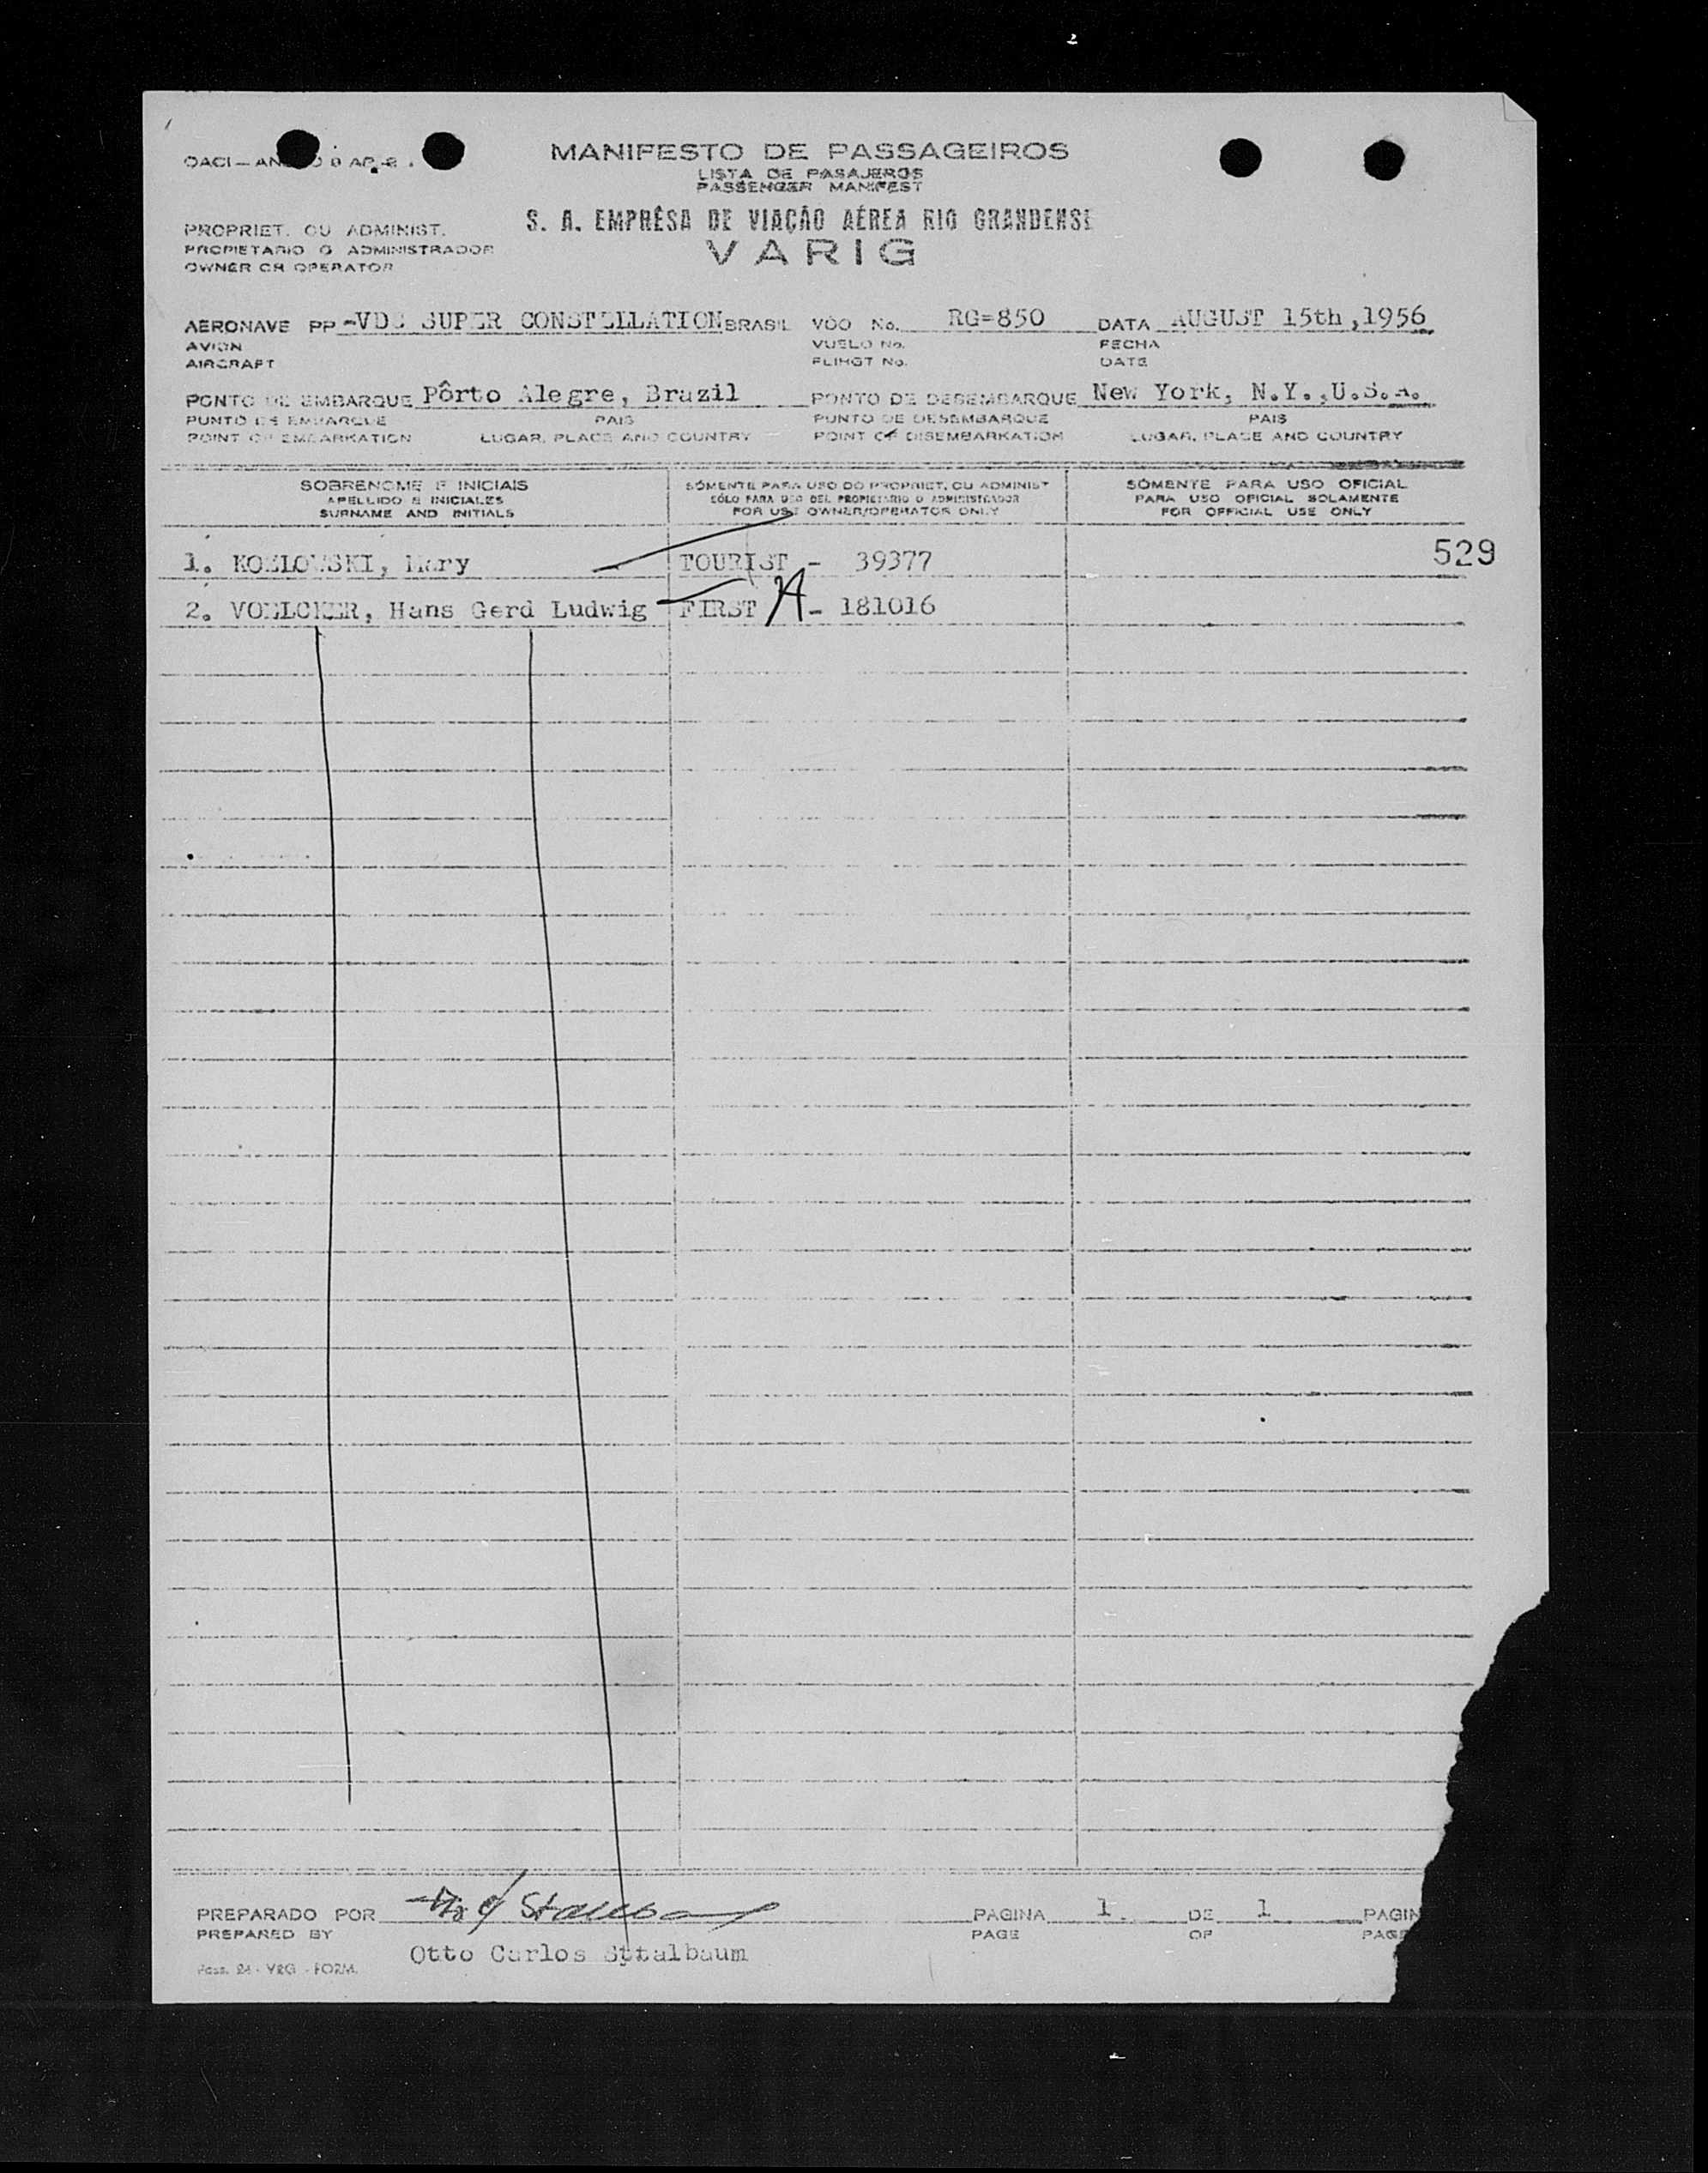 MANIFESTO DE PASSAGEIROS
LISTA DE PASAJEROS
PASSENGER MANIFEST
PROPRIET. OU ADMINIST. S. A. EMPRÊSA DE VIAÇÃO AÉREA RIO GRANDENSE
PROPIETARIO O ADMINISTRADOR VARIG
OWNER OR OPERATOR
AERONAVE PP SUPER CONSTELLATION BRASIL VÔO No. RG=850 DATA AUGUST 15th,1956
AVION VUELO No. FECHA
AIRCRAFT FLIHGT No. DATE
PONTO DE EMBARQUE Pôrto Alegre, Brazil PONTO DE DESEMBARQUE New York, N.Y.,U.S.A.
PUNTO DE EMBARQUE PAIS PUNTO DE DESEMBARQUE PAIS
POINT OF EMBARKATION LUGAR, PLACE AND COUNTRY POINT OF DISEMBARKATION LUGAR, PLACE AND COUNTRY
SOBRENOME E INICIAIS SÒMENTE PARA USO DO PROPRIET. OU ADMINIST SÒMENTE PARA USO OFICIAL
APELLIDO E INICIALES SÓLO PARA USO DEL PROPIETARIO O ADMINISTRADOR PARA USO OFICIAL SOLAMENTE
SURNAME AND INITIALS FOR USE OWNER/OPERATOR ONLY FOR OFFICIAL USE ONLY
1. KOZLOWSKI, Mary TOURIST - 39377 529
2. VOELCKER, Hans Gerd Ludwig FIRST A - 181016
PREPARADO POR PAGINA 1 DE 1 PAGIN
PREPARED BY PAGE OF PAGE
Otto Carlos Sttalbaum